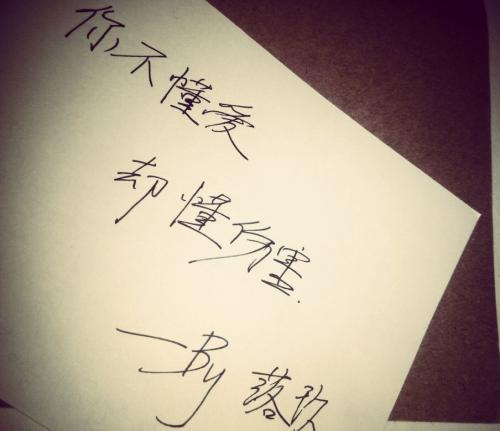 你不懂爱
却懂伤害.
—By 落玖